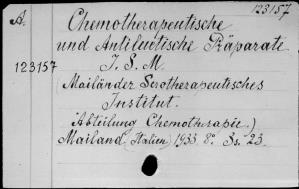 123157
A.
Chemotherapeutische
und Antiluetische Präparate
I. S. M
123157
(Mailänder Serotherapeutisches
Institut.
Abteilung Chemotherapie.)
Mailand (Italien) 1933. 8°. Ss. 23.